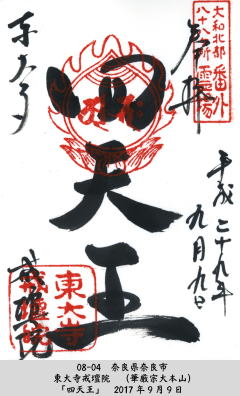 大和北部
八十八所霊場
番外
奉拝
平成二十九年
九月九日
四天王
東大寺
戒壇院
東大寺
戒壇院
08-04 奈良県奈良市
東大寺戒壇院 (華厳宗大本山)
「四天王」 2017年9月9日